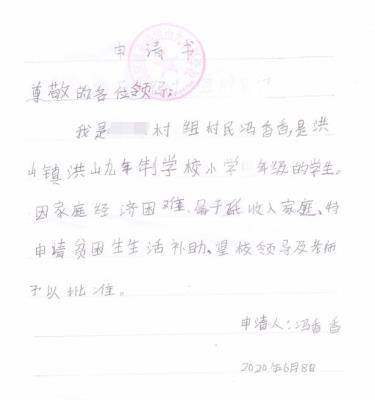 申请书
尊敬的各位领导:
我是 村 组村民冯香香,是洪
山镇洪山九年制学校小学 年级的学生。
因家庭经济困难、属于低收入家庭、特
申请贫困生生活补助。望校领导及老师
予以批准。
申请人:冯香香
2020年6月8日